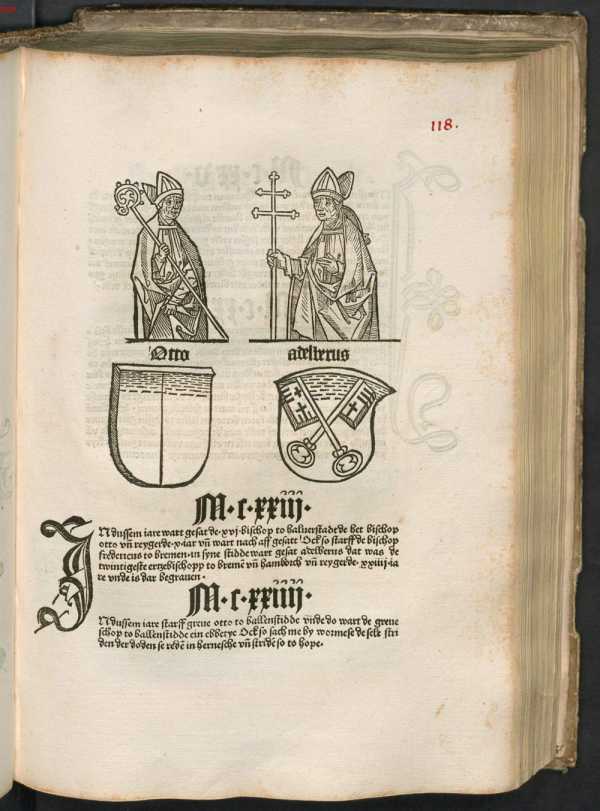 118.
Otto
adelberus
M.c.xxiij.
IN dussem iare wart gesat de.xvj.bischop to haluerstadt de het bischop
otto vñ reygerde.x.iar vñ wart nach aff gesatt Ock so starff de bischop
fredericus to bremen.in syne stidde wart gesat adelberus dat was de
twintigeste ertzebischopp to bremē vñ hamborch vñ reygerde.xxiiij.ia
re vnde is dar begrauen.
M.c.xxiiij.
IN dussem iare starff greue otto to ballenstidde vnde do wart de greue
schop to ballenstidde ein ebberye Ock so sach me by wormese de sele stri
den der doden se redē in hernesche vñ stridē so to hope.